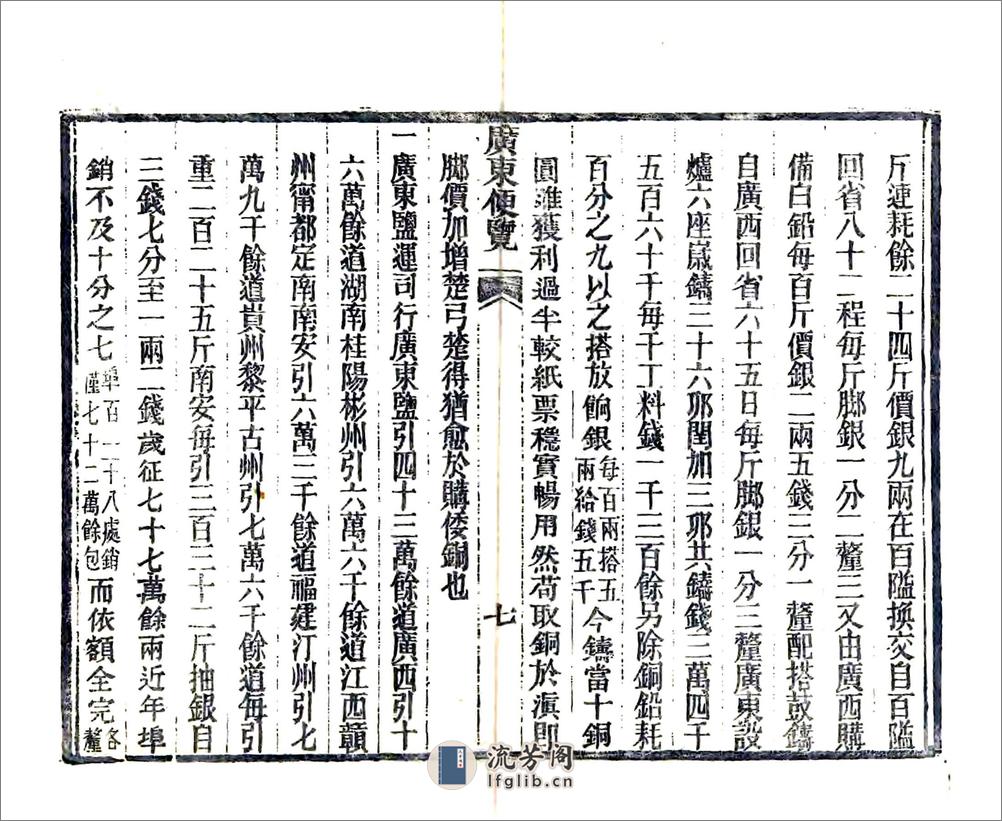 斤連耗餘二十四斤價銀九兩在百隘換交自百隘
回省八十二程每斤脚銀一分二釐三又由廣西購
備白鉛每百斤價銀二兩五錢三分一釐配搭鼓鑄
自廣西回省六十五日每斤脚銀一分三釐廣東設
爐六座嵗鑄三十六卯閏加三卯共鑄錢三萬四千
五百六十千每千工料錢一千三百餘另除銅鉛耗
百分之九以之搭放餉銀每百兩搭五兩給錢五千今鑄當十銅
圓雖獲利過半較紙票穩實暢用然苟取銅於滇即
脚價加增楚弓楚得猶愈於購倭銅也
廣東便覽
七
一廣東鹽運司行廣東鹽引四十三萬餘道廣西引十
六萬餘道湖南桂陽彬州引六萬六千餘道江西贛
州甯都定南南安引六萬三千餘道福建汀州引七
萬九千餘道貴州黎平古州引七萬六千餘道每引
重二百二十五斤南安每引三百三十二斤抽銀自
三錢七分至一兩二錢歲征七十七萬餘兩近年埠
銷不及十分之七埠百二十八處銷僅七十二萬餘包而依額全完各釐
流芳阁
lfglib.cn